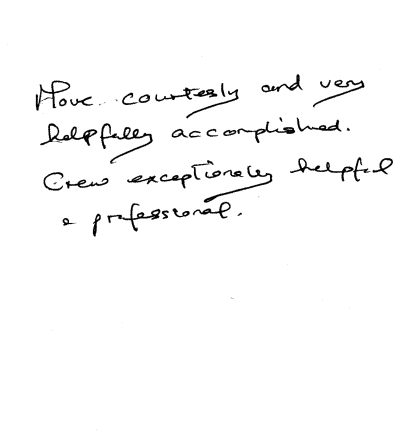 Move courtesly and very
helpfully accomplished.
Crew exceptionally helpful
& professional.